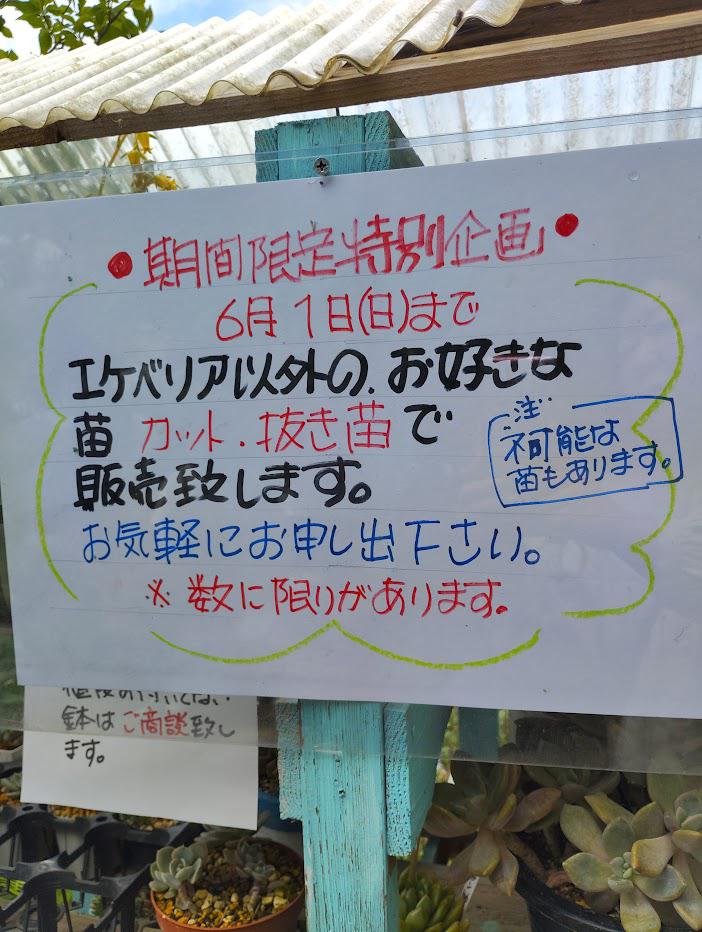 ●期間限定特別企画●
6月1日(日)まで
エケベリア以外の、お好きな
苗 カット・抜き苗で
販売致します。
注
不可能な
苗もあります。
お気軽にお申し出下さい。
※数に限りがあります。
鉢はご商談致し
ます。